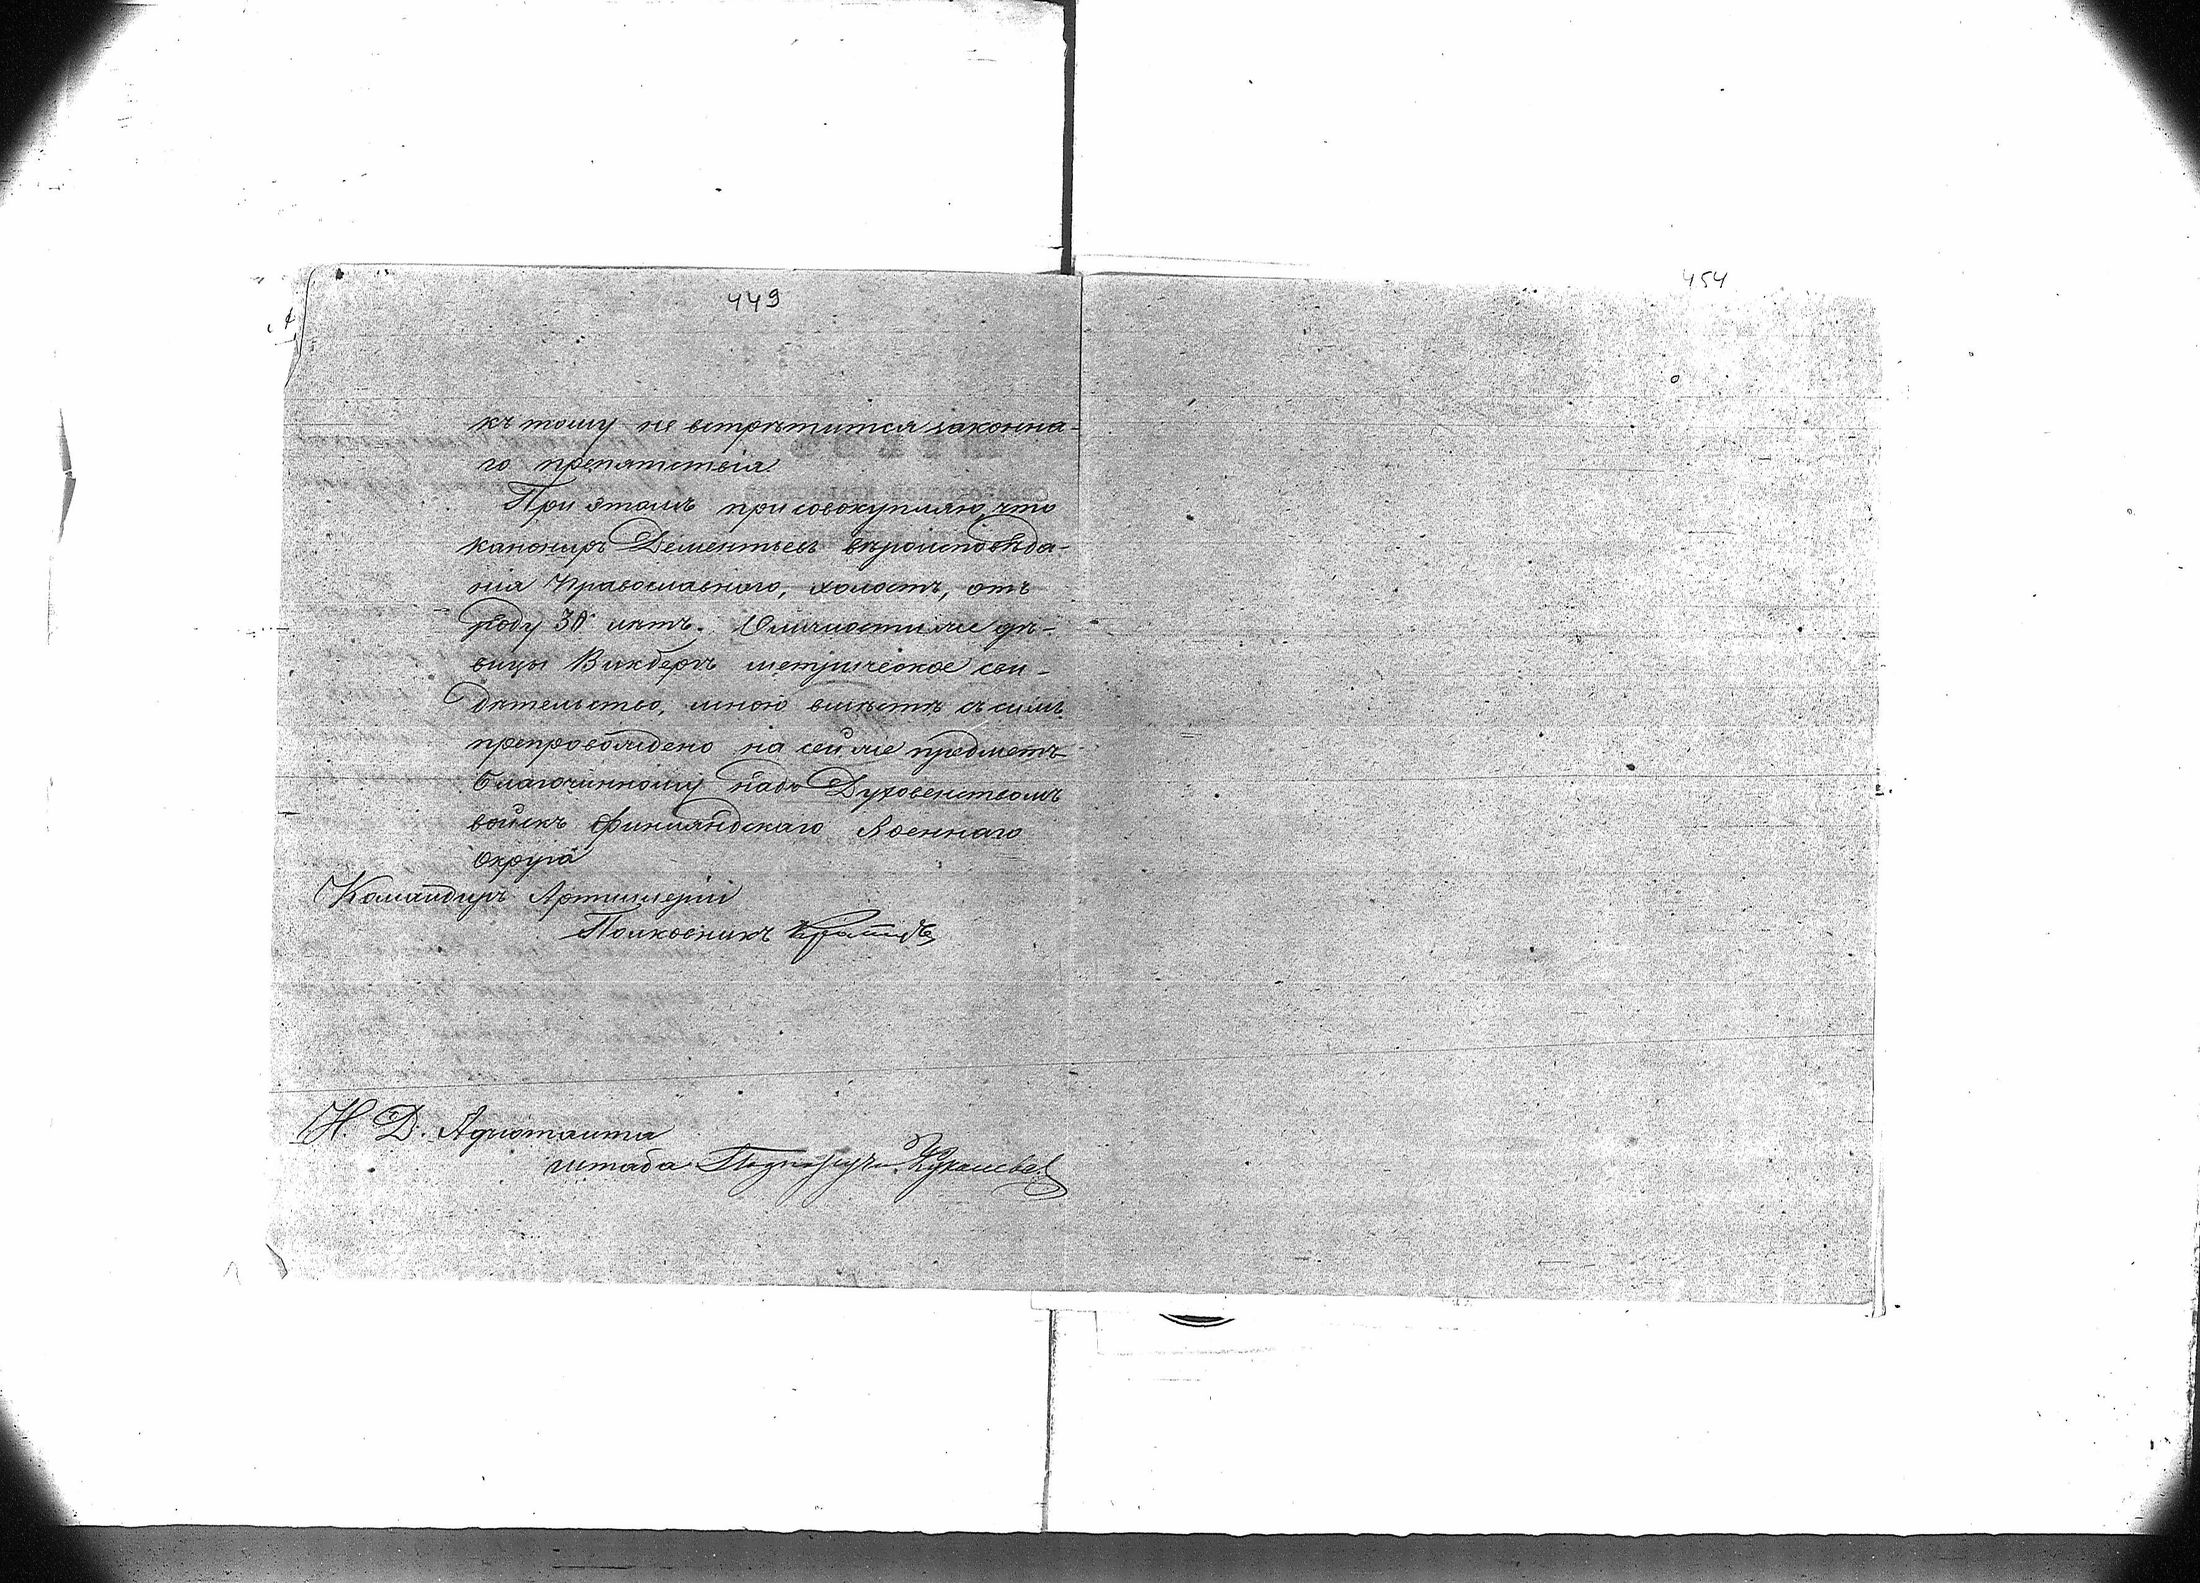 449
454
къ тому не встрѣтится законна-
го препятствія.
При этомъ присовокупляю, что
канониръ Дементьевъ вѣроисповѣда-
нія Православнаго, холостъ, отъ
роду 30 лѣтъ. О личности же дѣ-
вицы Викбергъ метрическое сви-
дѣтельство, мною вмѣстѣ съ симъ
препровождено на сей же предметъ
Благочинному надъ Духовенствомъ
войскъ Финляндскаго Военнаго
Округа
Командиръ Артиллеріи
Полковникъ
И. Д. Адъютанта
штаба Подпоруч.